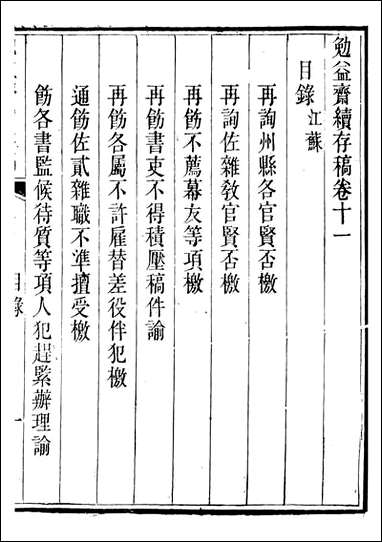 勉益齋續存稿卷十一
目錄 江蘇
再詢州縣各官賢否檄
再詢佐雜教官賢否檄
再飭不薦幕友等項檄
再飭書吏不得積壓稿件諭
再飭各屬不許雇替差役伴犯檄
通飭佐貳雜職不準擅受檄
飭各書監候待質等項人犯趕緊辦理諭
目錄
一